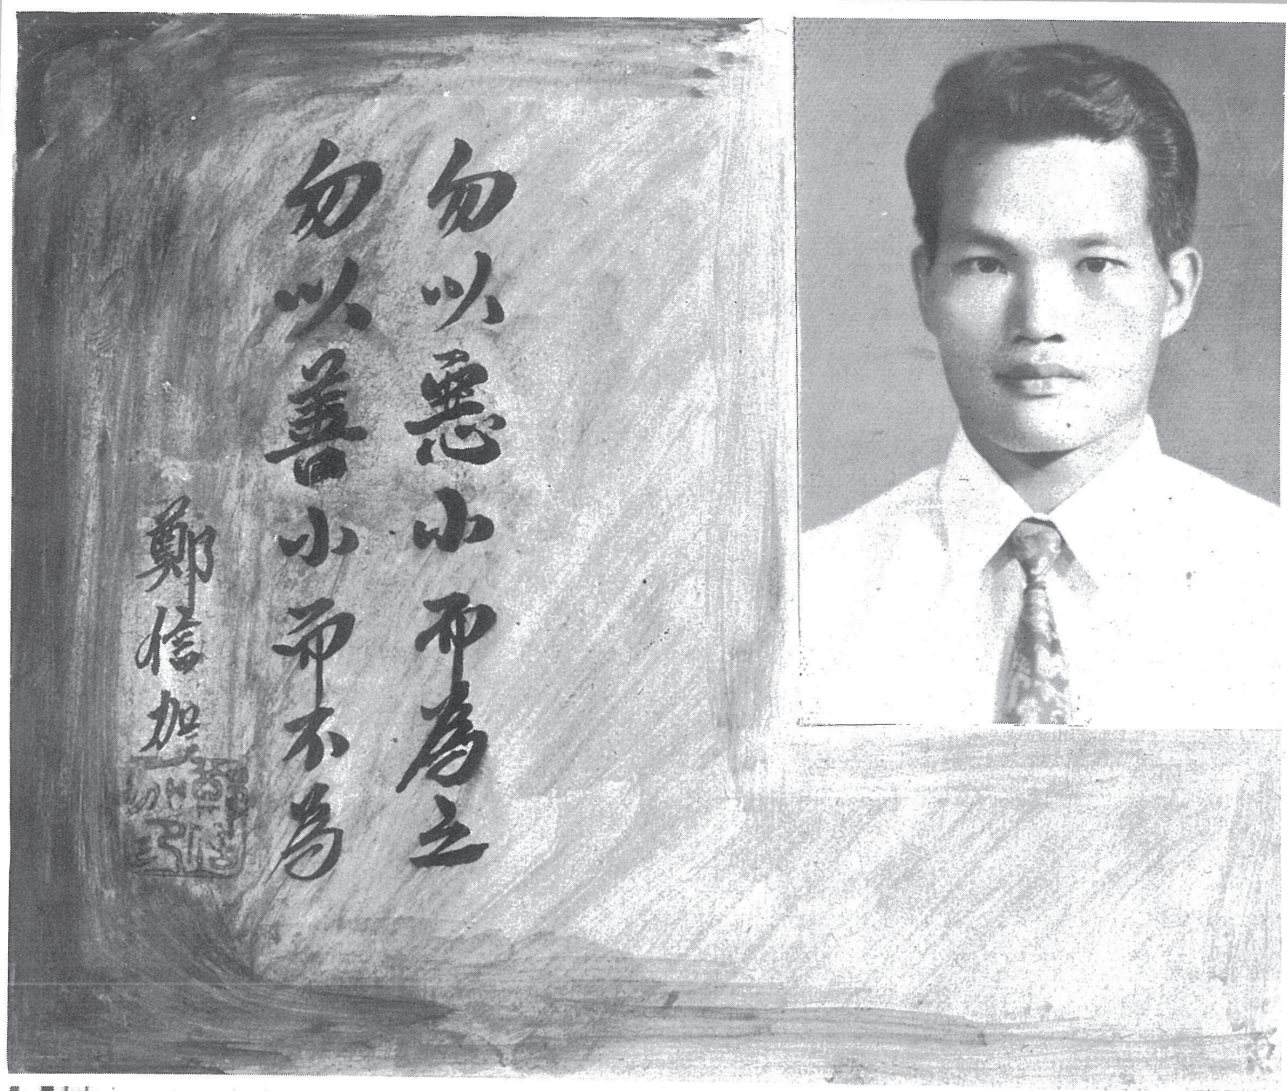 勿以惡小而為之
勿以善小而不為
鄭信加